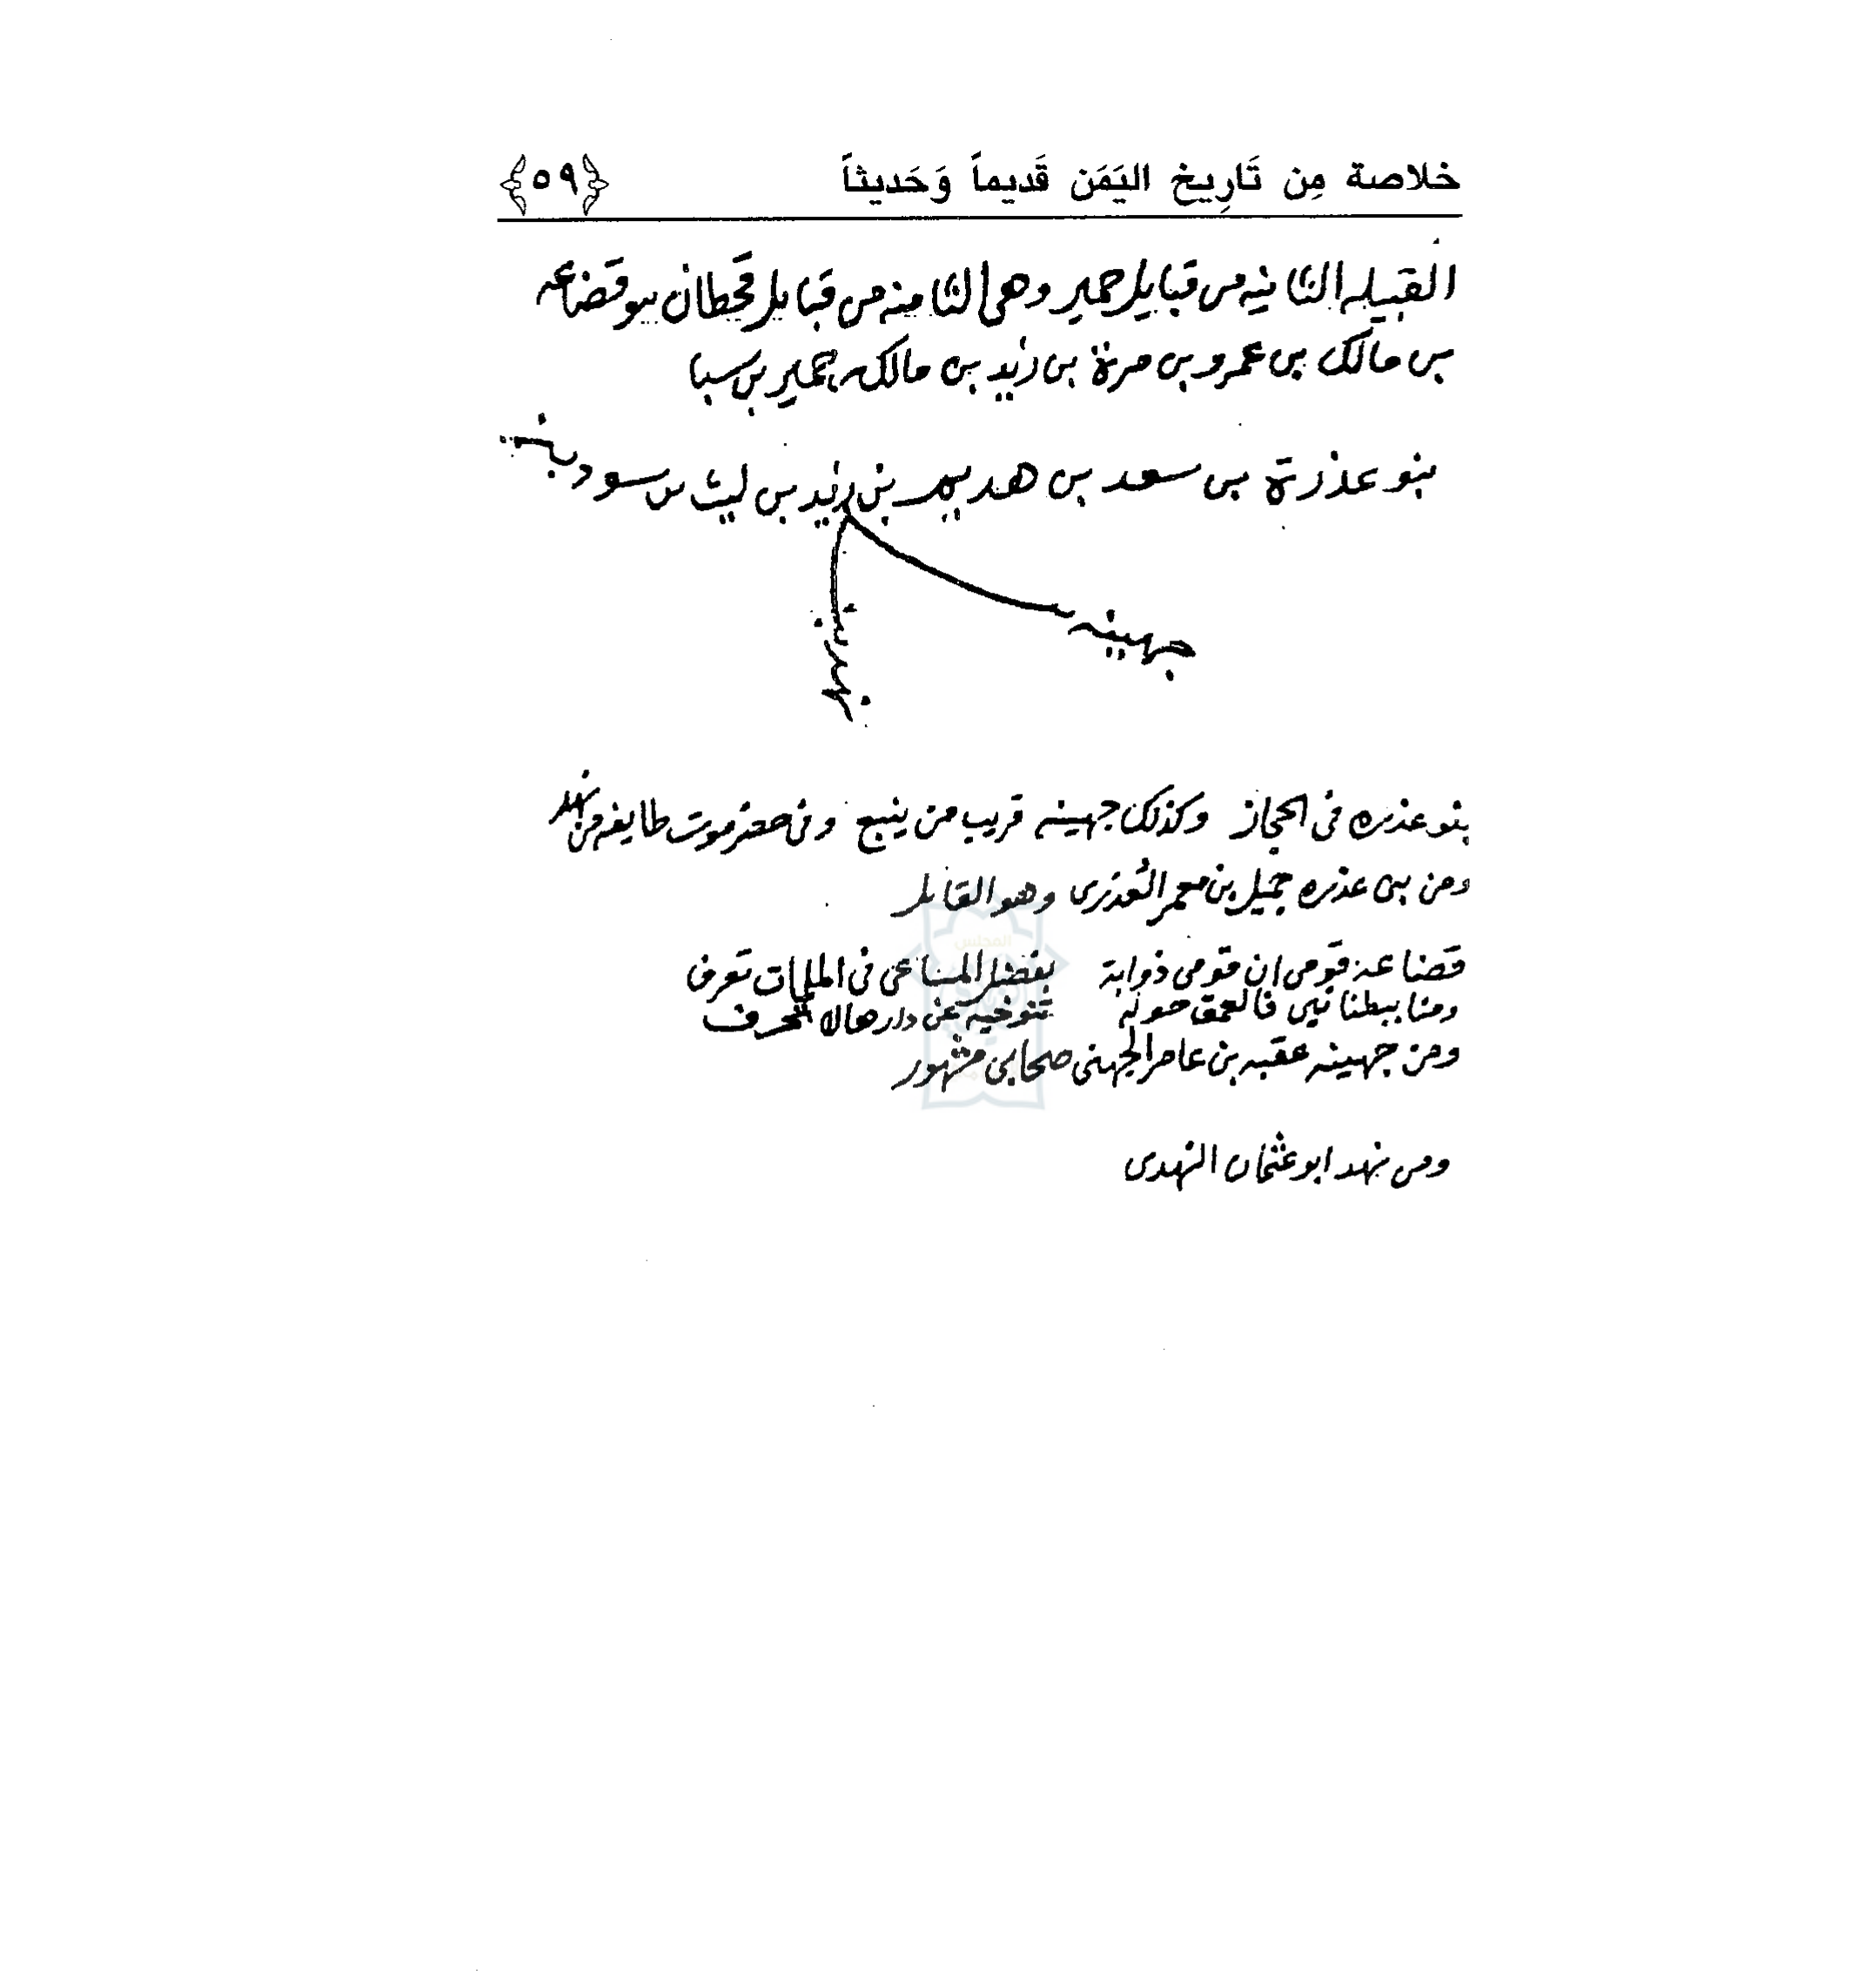 خلاصة مِن تَارِيخ اليَمَن قَديماً وَحَديثاً
﴿٥٩﴾
القبيله الثانيه من قبايل حمير وهى الثامنه من قبايل قحطان بنو قضاعه
بن مالك بن عمرو بن مرة بن زيد بن مالك بن حمير بن سبا
بنو عذرة بن سعد بن هديم بن زيد بن ليث بن سود
جهينه
نهد بن
بنو عذره فى الحجاز وكذلك جهينه قريب من ينبع وفى حضرموت طايفه من نهد
ومن بنى عذره جميل بن معمر العذرى وهو القايل
قضاعة قومى ان قومى ذوابة بفضل المساعى فى الملمات تعرف
ومنا ببطنا فالعمق حوله تنوخيه عن دارها لا تحرف
ومن جهينه عقبه بن عامر الجهنى صحابى مشهور
ومن نهد ابو عثمان النهدى
المجلس